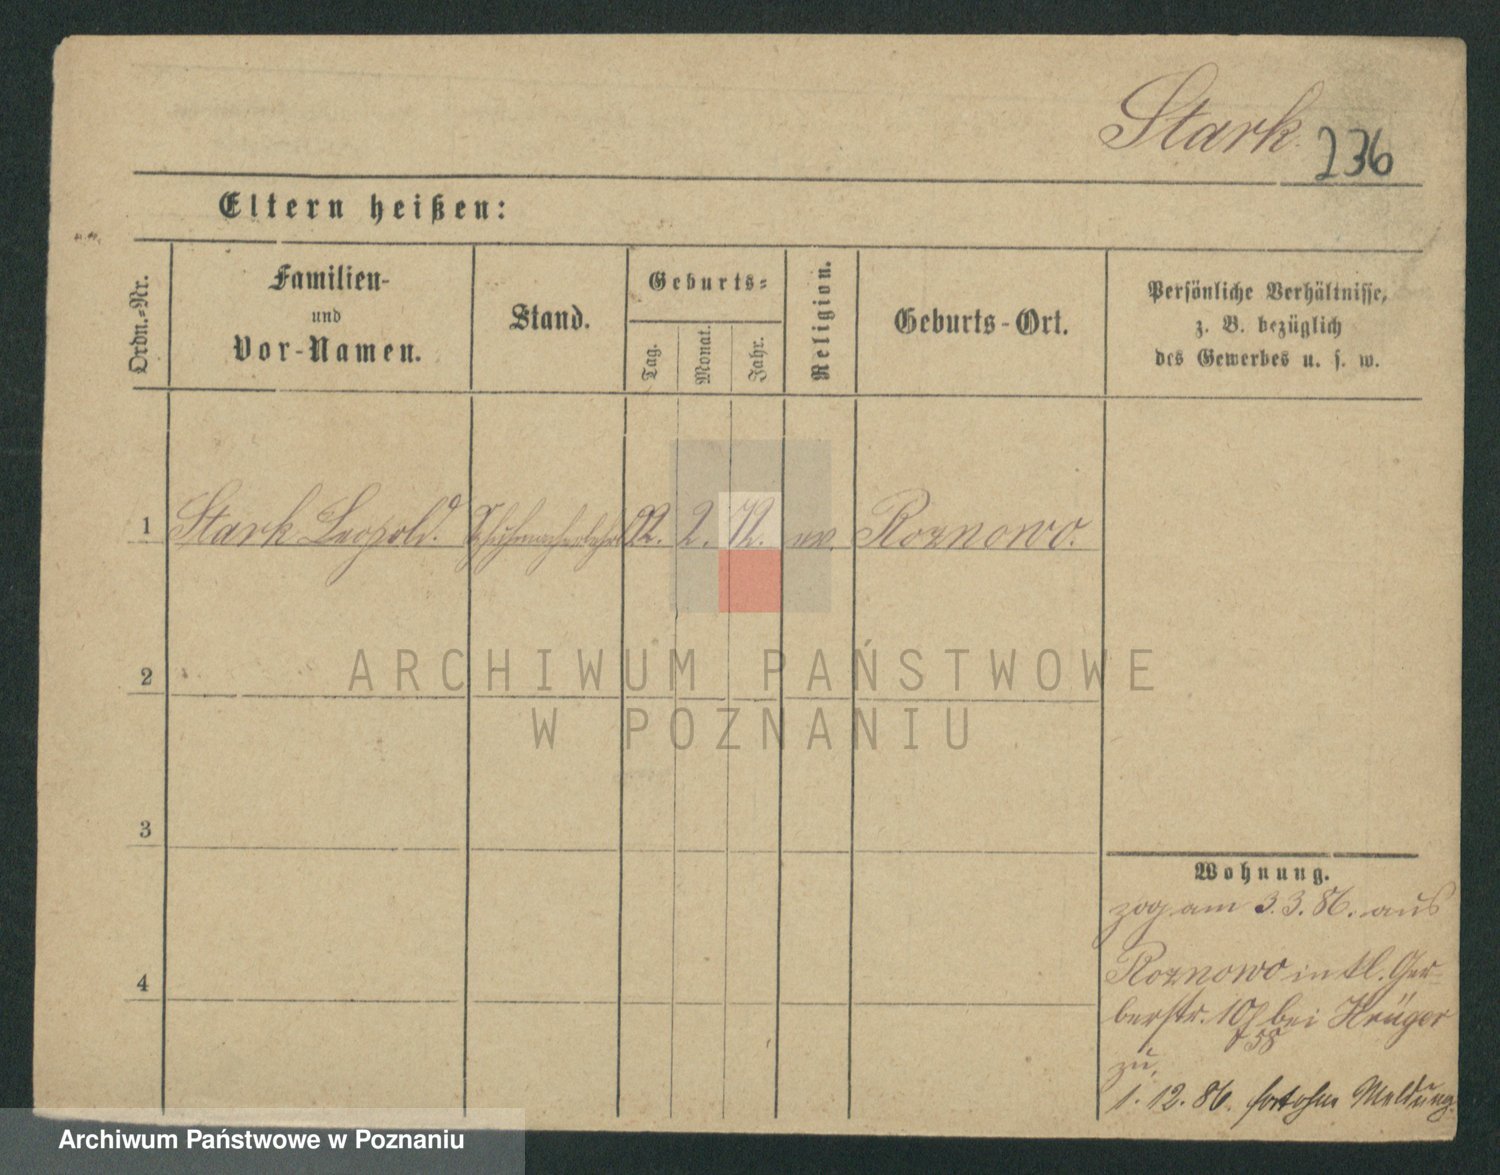 Stark.
236
Eltern heißen:
Ordn.-Nr.
Familien-
und
Vor-Namen.
Stand.
Geburts-
Tag.
Monat.
Jahr.
Religion.
Geburts-Ort.
Persönliche Verhältnisse,
z. B. bezüglich
des Gewerbes u. s. w.
1 Stark Leopold. Schuhmacherlehrl 22. 2. 72. ev. Roznowo.
2
3
4
Wohnung.
zog am 3.3.86. aus
Roznowo in kl. Ger-
berstr. 10 bei Krüger
58
zu.
1. 12. 86. fort ohne Meldung.
ARCHIWUM PAŃSTWOWE
W POZNANIU
Archiwum Państwowe w Poznaniu